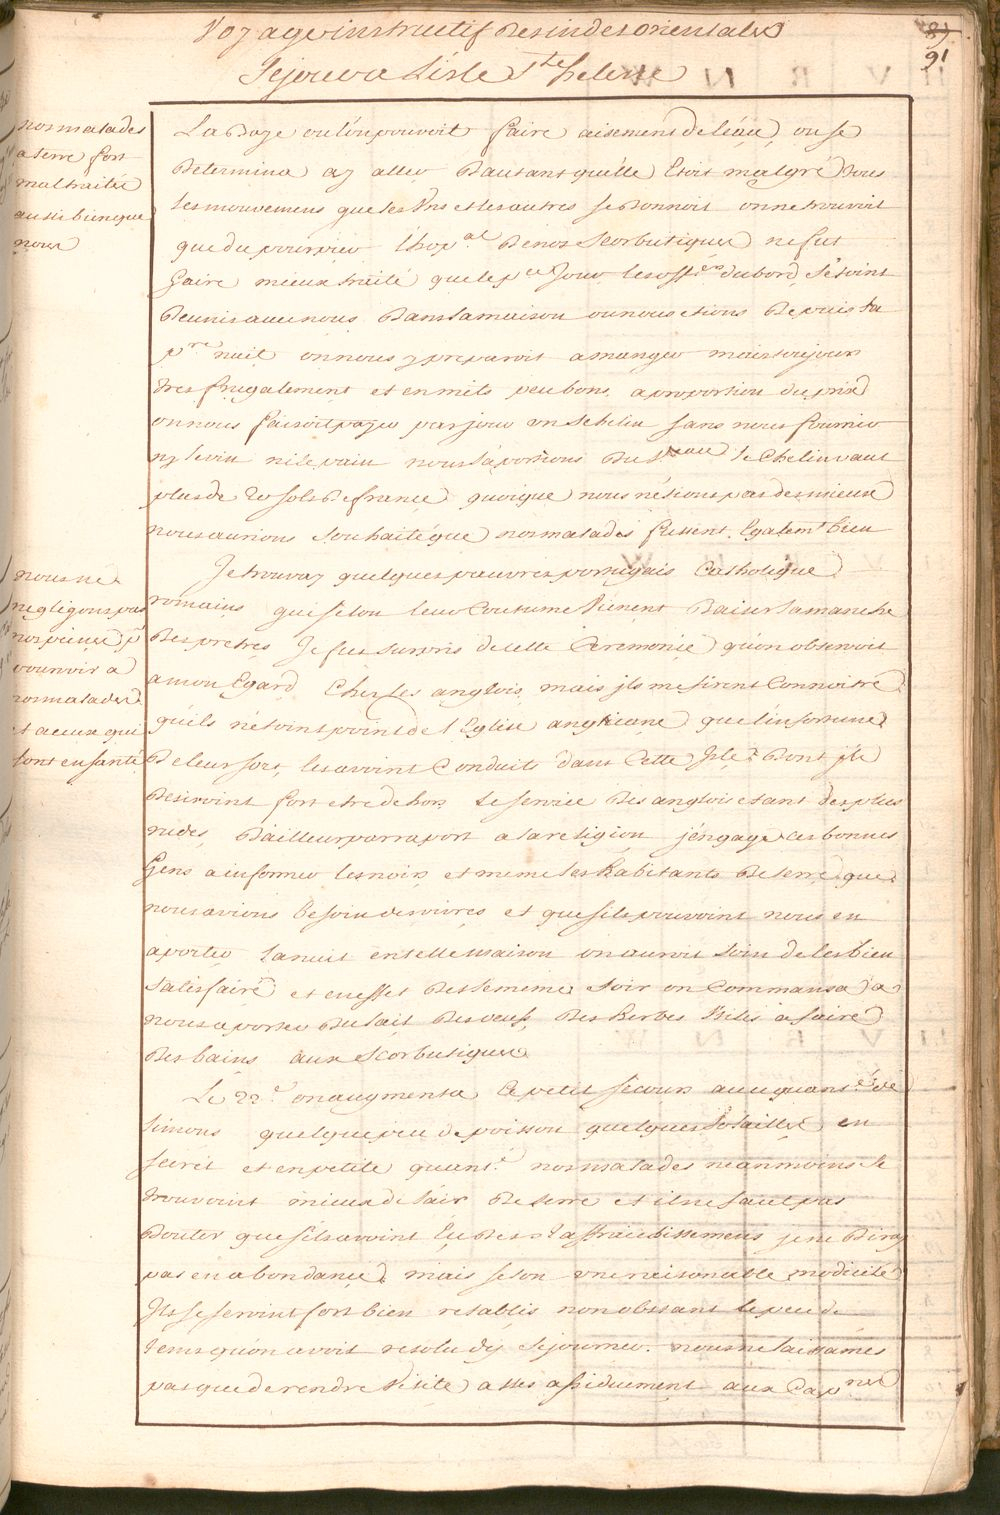 Voyage instructif Des indes orientales
89
91
Sejour a L'isle Ste helene
nos malades
a terre fort
mal traités
aussi bien que
nous
La Baye ou l'on pouvoit faire aisement de l'eau, on se
Determina a y aller D'autant qu'elle Etoit malgré tous
les mouvemens que les uns et les autres se Donnoit on ne trouvoit
que du pourpier l'hopal De nos scorbutiques ne fut
Gaire mieux traité que le per Jour les offers du bord s'etoint
Reunis avec nous Dans la maison ou nous etions Depuis la
pre nuit on nous y preparoit a manger mais toujours
tres frugalement et en mets peu bons, a proportion du prix
on nous faisoit payer par jour un schelin sans nous fournir
ny le vin ni le pain nous l'aportions Du Vaau le Chelin vaut
plus de 20 sols De france, quoique nous n'etions pas des mieux
nous aurions souhaité que nos malades fussent Egalemt bien
nous ne
negligons pas
nos peines pr
pourvoir a
nos malades
et a ceux qui
sont en santé
Je trouvay quelques pauvres portugais Catholique
romains qui selon leur Coutume Viennent Baiser la manche
Des pretres, Je fus surpris de cette Ceremonie qu'on observoit
a mon Egard Chez les anglois, mais ils me firent Connoitre
qu'ils n'etoint point de l'Eglise angliçane que l'infortune
De leur sort, les avoint Conduits dans Cette Isle Dont ils
Desiroint fort etre dehors le service Des anglois etant des plus
rudes D'ailleur par raport a la religion j'engage ces bonnes
Gens a informer les noirs et meme les habitants De terre que
nous avions Besoin de vivres et que s'ils pouvoint nous en
aporter la nuit en telle maison on auroit soin de les bien
satisfaire et en effet Des le meme soir on Commansa a
nous aporter Du lait Des oeufs, Des herbes utiles a faire
Des bains aux scorbutiques
Le 22e on augmenta Ce petit secours avec quanté de
limons quelque peu de poisson quelques volailles en
secret et en petite quanté nos malades neanmoins se
trouvoint mieux de l'air De terre et il ne faut pas
Douter que s'ils avoint Eu Des rafraichissemens je ne Diray
pas en abondance mais selon une raisonable modicité
Ils se seroint fort bien retablis nonobstant le peu de
tems qu'on avoit resolu d'y sejourner. nous ne laissames
pas que de rendre Visite asses assiduement aux Capnes